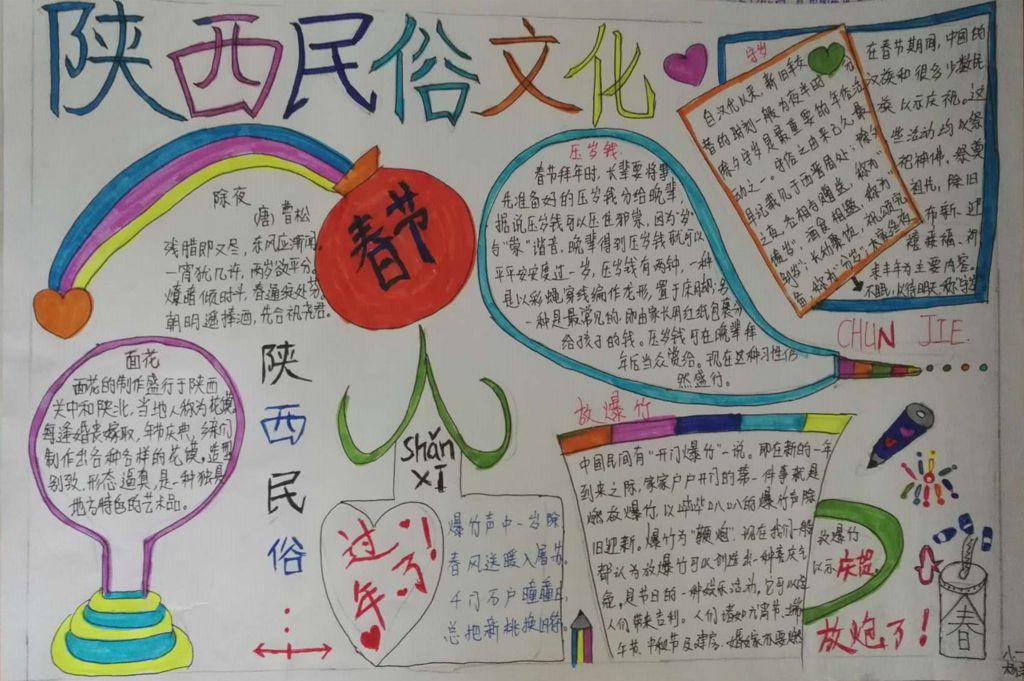 陕西民俗文化
除夜
(唐)曹松
残腊即又尽，东风应渐闻。
一宵犹几许，两岁欲平分。
燎暗倾时斗，春通绽处芬。
朝明遥捧酒，先合祝尧君。
春节
压岁钱
春节拜年时，长辈要将事
先准备好的压岁钱分给晚辈，
据说压岁钱可以压住邪祟，因为"岁"
与"祟"谐音，晚辈得到压岁钱就可以
平平安安度过一岁，压岁钱有两种，一种
是以彩绳穿线编作龙形，置于床脚，另
一种是最常见的即由家长用红纸包裹分
给孩子的钱。压岁钱可在晚辈拜
年后当众赏给。现在这种习性仍
然盛行。
守岁
自汉代以来，新旧年交
替的时刻一般为夜半时分
在春节期间，中国的
汉族和很多少数民
族
以示庆祝。这
些活动均以祭
祀神佛、祭奠
祖先，除旧
布新、迎
禧接福、祈
求丰年为主要内容。
CHUN JIE.
面花
面花的制作盛行于陕西
关中和陕北，当地人称为花馍
每逢婚丧嫁取，年节庆典，乡亲们
制作出各种各样的花馍。造型
别致，形态逼真，是一种独具
地方特色的艺术品。
陕
西
民
俗
shǎn
xī
过年了！
爆竹声中一岁除，
春风送暖入屠苏。
千门万户曈曈日，
总把新桃换旧符。
放爆竹
中国民间有"开门爆竹"一说。即在新的一年
到来之际，家家户户开门的第一件事就是
燃放爆竹，以哔哔叭叭的爆竹声除
旧迎新。爆竹为"鞭炮"，现在我们一般
都认为放爆竹可以创造出一种喜庆气
氛，是节日的一种娱乐活动，它可以给
人们带来吉利。人们诸如元宵节、端
午节、中秋节及建房、婚嫁家亦要燃
放爆竹
以示庆贺。
放炮了！
春